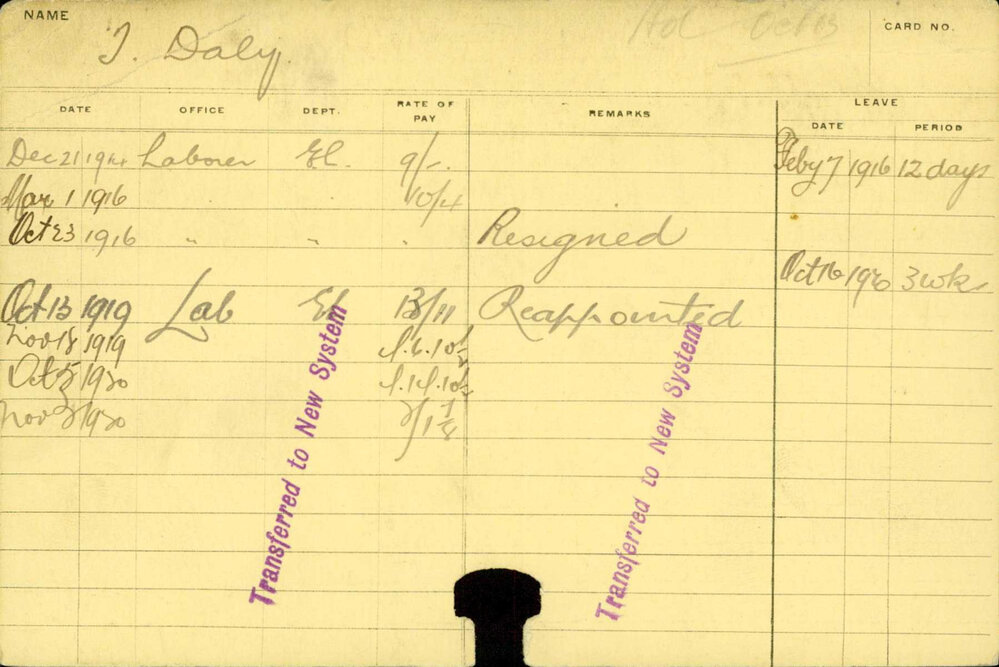 NAME
T. Daly.
Hol Oct 13
CARD NO.
DATE OFFICE DEPT. RATE OF PAY REMARKS LEAVE
DATE PERIOD
Dec 21 1914 Laborer El. 9/-.
Feby 7 1916 12 days
Mar 1 1916 " " 10/4
Oct 23 1916 " " " Resigned
Oct 16 1920 3 wks
Oct 13 1919 Lab El 13/11 Reappointed
Nov 18 1919
Oct 5 1920
Nov 1920
Transferred to New System
Transferred to New System